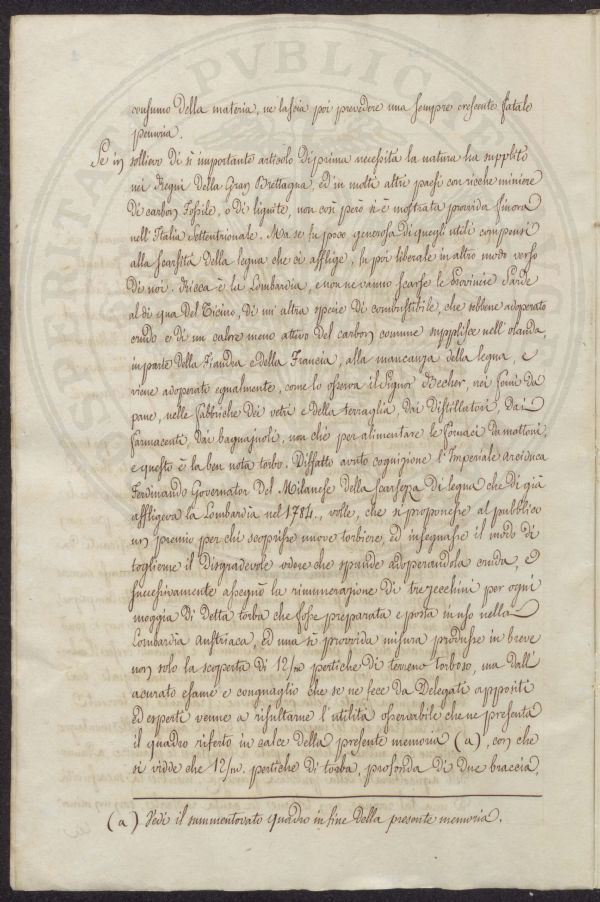 consumo della materia, ne lascia poi prevedere una sempre crescente fatale
penuria.
Se in sollievo di sì importante articolo di prima necessità la natura ha supplito
nei Regni della Gran Brettagna, ed in molti altri paesi con ricche miniere
di carbon fossile, o di lignite, non così però si è mostrata provvida finora
nell'Italia Settentrionale. Ma se fu poco generosa di quegli utili compensi
alla scarsità della legna che ci afflige, fu poi liberale in altro modo verso
di noi. Ricca è la Lombardia, e non ne vanno scarse le Provincie Sarde
al di qua del Ticino, di un altra specie di combustibile, che sebbene adoperato
crudo e di un calore meno attivo del carbon comune supplisce nell'olanda,
in parte della Fiandra e della Francia, alla mancanza della legna, e
viene adoperato egualmente, come lo osserva il Signor Becher, nei forni da
pane, nelle fabbriche dei vetri e della terraglia, dai distillatori, dai
farmacenti, dai bagnajuoli, non chè per alimentare le fornaci da mattoni,
e questo è la ben nota torbo. Diffatto avuto cognizione l'Imperiale Arciduca
Ferdinando Governator del Milanese della scarsezza di legna che di già
affliggeva la Lombardia nel 1784., volle, che si proponesse al pubblico
un premio per chi scoprisse nuove torbiere, ed insegnasse il modo di
toglierne il disgradevole odore che spande adoperandola cruda, e
successivamente assegnò la rimunerazione di tre zecchini per ogni
moggia di detta torba che fosse preparata e posta in uso nella
Lombardia austriaca, ed una sì provvida misura produsse in breve
non solo la scoperta di 12/m pertiche di terreno torboso, ma dall'
acurato esame e conguaglio che se ne fece da Delegati appositi
ed esperti venne a risultarne l'utilità osservabile che ne presenta
il quadro riferto in calce della presente memoria (a), con che
si vidde che 12/m. pertiche di torba, profonda di due braccia,
(a) Vedi il summentovato quadro in fine della presente memoria.
PVBLICAE
PROSPERITATI